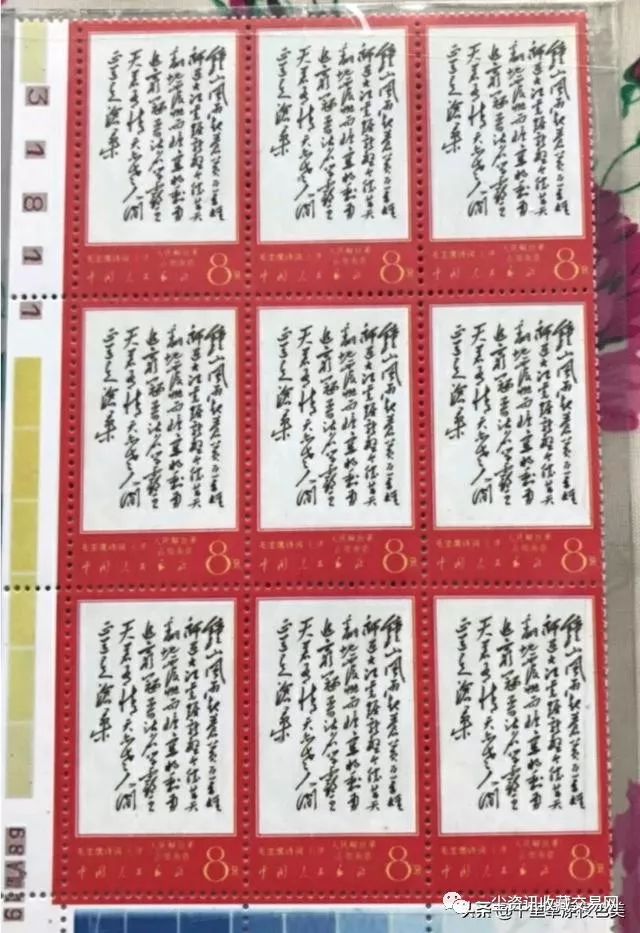 3 1 8 1 1
鍾山風雨起蒼黄百萬雄
師過大江虎踞龍盤今勝昔天
翻地覆慨而慷宜將剩勇
追窮寇不可沽名學霸王
天若有情天亦老人間
正道是滄桑
毛主席诗词 七律 人民解放军
占领南京
中国人民邮政 8分
鍾山風雨起蒼黄百萬雄
師過大江虎踞龍盤今勝昔天
翻地覆慨而慷宜將剩勇
追窮寇不可沽名學霸王
天若有情天亦老人間
正道是滄桑
毛主席诗词 七律 人民解放军
占领南京
中国人民邮政 8分
鍾山風雨起蒼黄百萬雄
師過大江虎踞龍盤今勝昔天
翻地覆慨而慷宜將剩勇
追窮寇不可沽名學霸王
天若有情天亦老人間
正道是滄桑
毛主席诗词 七律 人民解放军
占领南京
中国人民邮政 8分
鍾山風雨起蒼黄百萬雄
師過大江虎踞龍盤今勝昔天
翻地覆慨而慷宜將剩勇
追窮寇不可沽名學霸王
天若有情天亦老人間
正道是滄桑
毛主席诗词 七律 人民解放军
占领南京
中国人民邮政 8分
鍾山風雨起蒼黄百萬雄
師過大江虎踞龍盤今勝昔天
翻地覆慨而慷宜將剩勇
追窮寇不可沽名學霸王
天若有情天亦老人間
正道是滄桑
毛主席诗词 七律 人民解放军
占领南京
中国人民邮政 8分
鍾山風雨起蒼黄百萬雄
師過大江虎踞龍盤今勝昔天
翻地覆慨而慷宜將剩勇
追窮寇不可沽名學霸王
天若有情天亦老人間
正道是滄桑
毛主席诗词 七律 人民解放军
占领南京
中国人民邮政 8分
鍾山風雨起蒼黄百萬雄
師過大江虎踞龍盤今勝昔天
翻地覆慨而慷宜將剩勇
追窮寇不可沽名學霸王
天若有情天亦老人間
正道是滄桑
毛主席诗词 七律 人民解放军
占领南京
中国人民邮政 8分
鍾山風雨起蒼黄百萬雄
師過大江虎踞龍盤今勝昔天
翻地覆慨而慷宜將剩勇
追窮寇不可沽名學霸王
天若有情天亦老人間
正道是滄桑
毛主席诗词 七律 人民解放军
占领南京
中国人民邮政 8分
鍾山風雨起蒼黄百萬雄
師過大江虎踞龍盤今勝昔天
翻地覆慨而慷宜將剩勇
追窮寇不可沽名學霸王
天若有情天亦老人間
正道是滄桑
毛主席诗词 七律 人民解放军
占领南京
中国人民邮政 8分
尖资讯收藏交易网
头条@千里草原牧色美